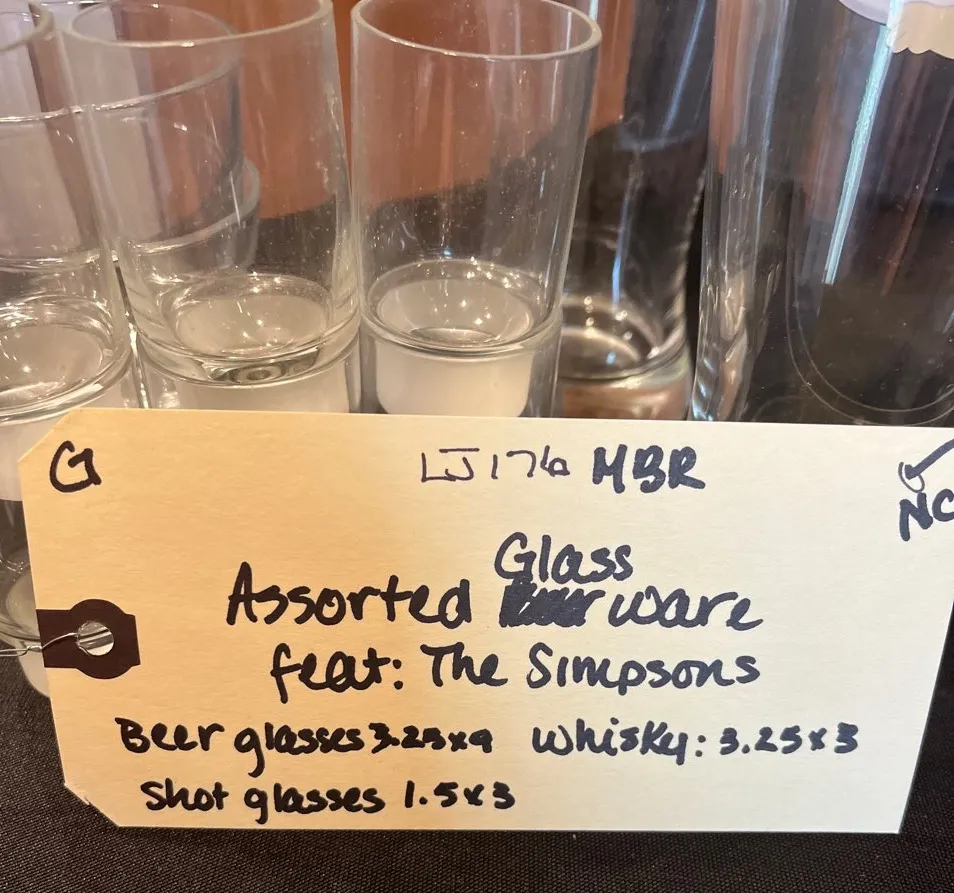 G
LJ176 MBR
NC
Glass
Assorted ware
feat: The Simpsons
Beer glasses 3.25x9 Whisky: 3.25x3
Shot glasses 1.5x3